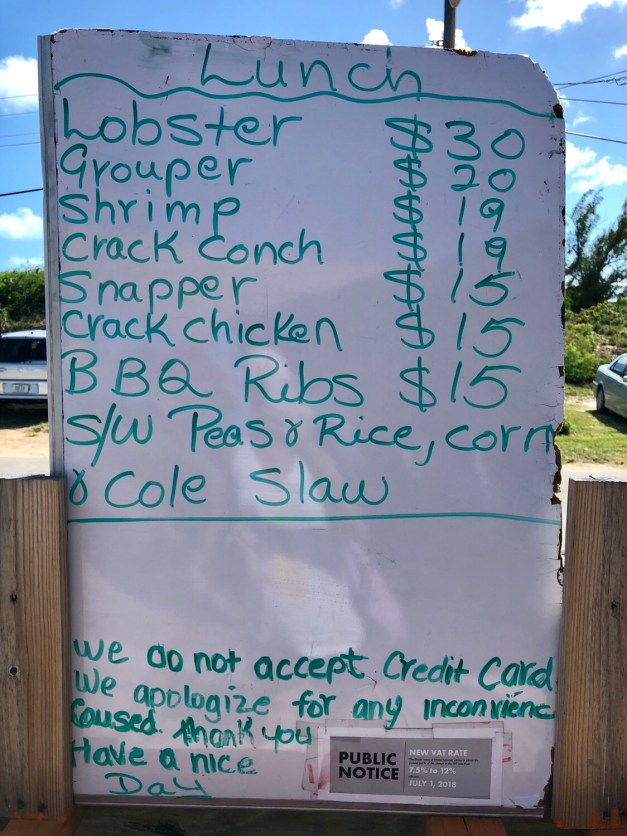 Lunch
Lobster $30
Grouper $20
Shrimp $19
Crack Conch $19
Snapper $15
Crack Chicken $15
BBQ Ribs $15
S/W Peas & Rice, corn
& Cole Slaw
We do not accept Credit Card.
We apologize for any inconvienc
Caused. Thank you
Have a nice
Day
PUBLIC
NOTICE
NEW VAT RATE
7.5% to 12%
JULY 1, 2018